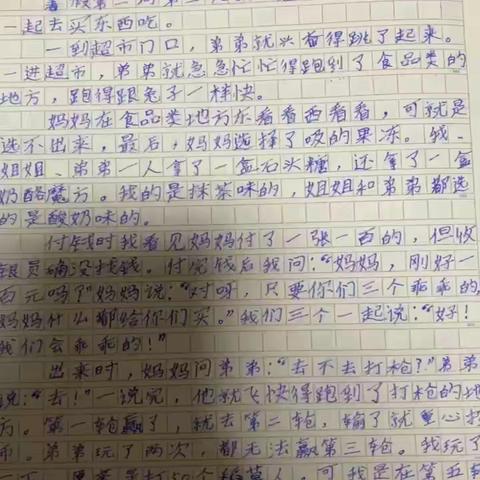 暑假第二
一起去买东西吃。
一到超市门口，弟弟就兴奋得跳了起来。
一进超市，弟弟就急急忙忙得跑到了食品类的
地方，跑得跟兔子一样快。
妈妈在食品类地方东看看西看看，可就是
选不出来，最后，妈妈选择了吸的果冻。我、
姐姐、弟弟一人拿了一盒石头糖，还拿了一盒
奶酪魔方。我的是抹茶味的，姐姐和弟弟都选
的是酸奶味的。
付钱时我看见妈妈付了一张一百的，但收
银员确没找钱。付完钱后我问：“妈妈，刚好一
百元吗？”妈妈说：“对呀，只要你们三个乖乖的，
妈妈什么都给你们买。”我们三个一起说：“好！
我们会乖乖的！”
出来时，妈妈问弟弟：“去不去打枪？”弟弟
说：“去！”一说完，他就飞快得跑到了打枪的地
方。第一轮赢了，就去第二轮，输了就重心投
币。弟弟玩了两次，都无法赢第三轮。我玩了
一下，是打50个稻草人，可我是在第五轮